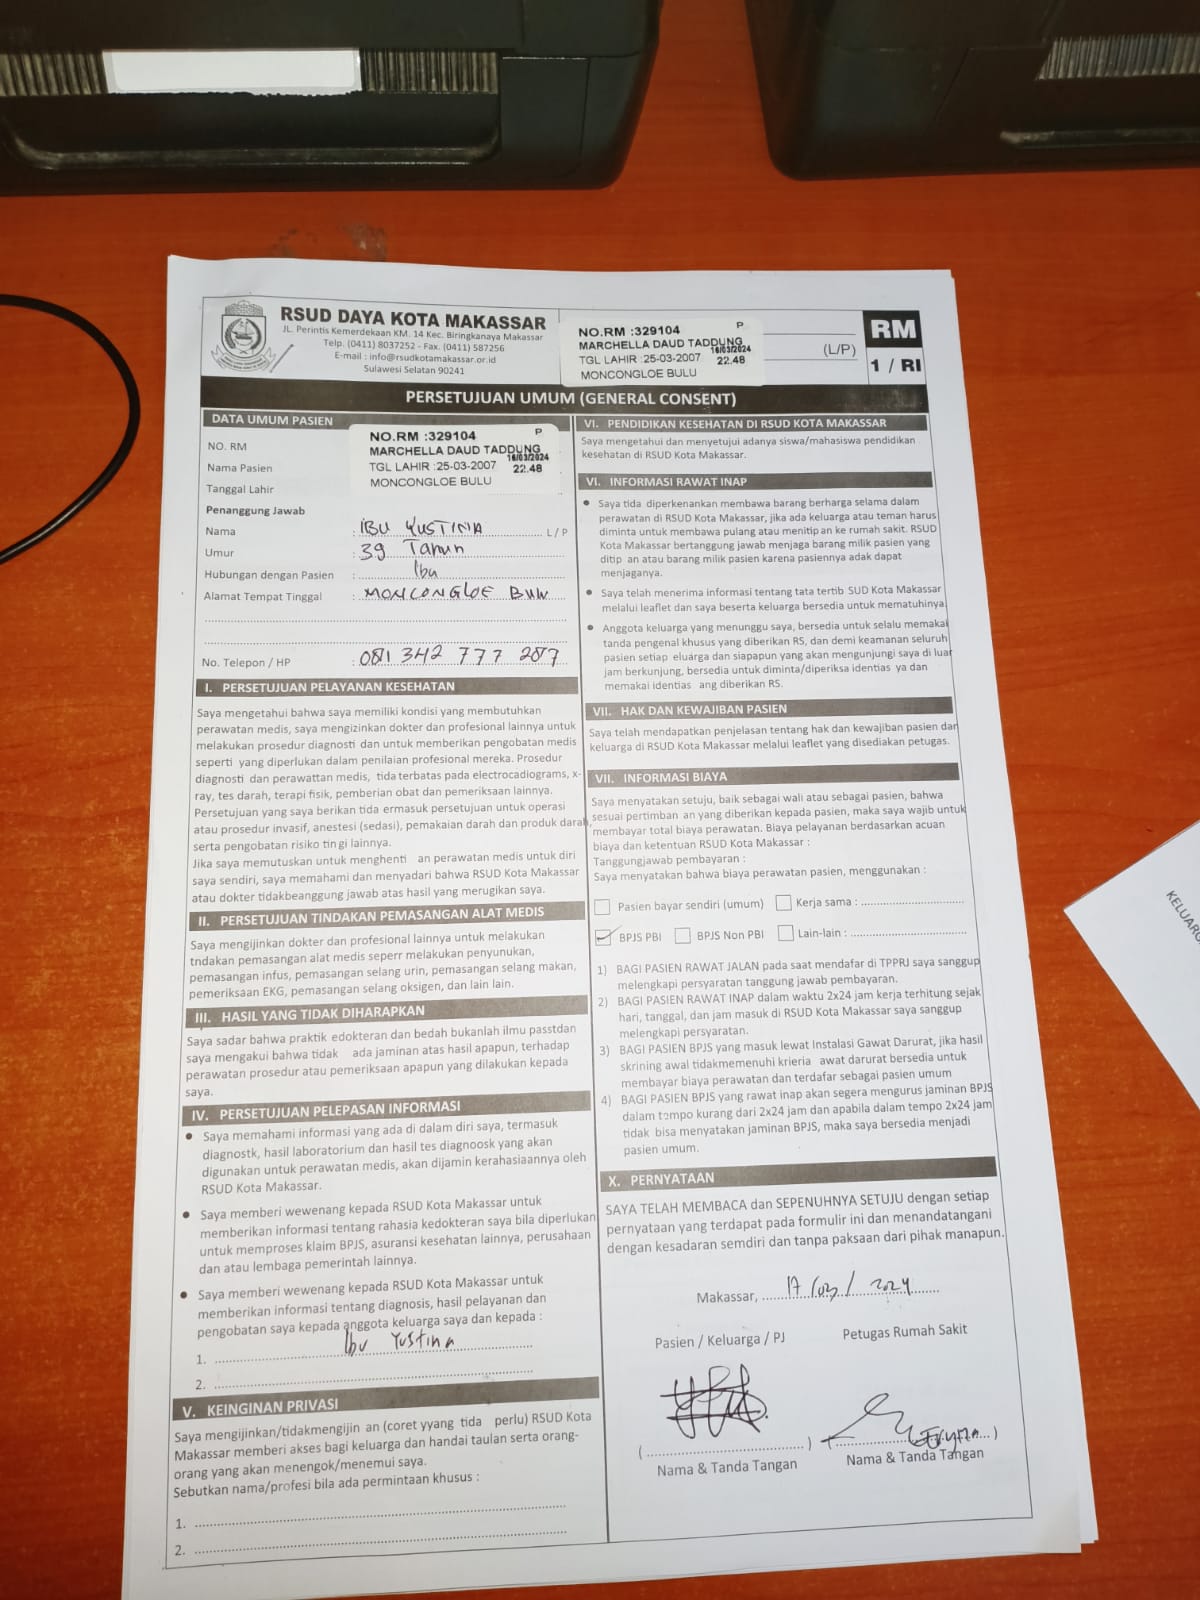 RSUD DAYA KOTA MAKASSAR
JL. Perintis Kemerdekaan KM. 14 Kec. Biringkanaya Makassar
Telp. (0411) 8037252 - Fax. (0411) 587256
E-mail : info@rsudkotamakassar.or.id
Sulawesi Selatan 90241
NO.RM :329104 P
MARCHELLA DAUD TADDUNG
16/03/2024
TGL LAHIR :25-03-2007 22.48
MONCONGLOE BULU
(L/P)
RM
1 / RI
PERSETUJUAN UMUM (GENERAL CONSENT)
DATA UMUM PASIEN
NO. RM
Nama Pasien
Tanggal Lahir
NO.RM :329104 P
MARCHELLA DAUD TADDUNG
16/03/2024
TGL LAHIR :25-03-2007 22.48
MONCONGLOE BULU
Penanggung Jawab
Nama : IBU YUSTINA L / P
Umur : 39 Tahun
Hubungan dengan Pasien : Ibu
Alamat Tempat Tinggal : MONCONGLOE BULU
No. Telepon / HP : 081 342 777 287
I. PERSETUJUAN PELAYANAN KESEHATAN
Saya mengetahui bahwa saya memiliki kondisi yang membutuhkan
perawatan medis, saya mengizinkan dokter dan profesional lainnya untuk
melakukan prosedur diagnosti dan untuk memberikan pengobatan medis
seperti yang diperlukan dalam penilaian profesional mereka. Prosedur
diagnosti dan perawattan medis, tida terbatas pada electrocadiograms, x-
ray, tes darah, terapi fisik, pemberian obat dan pemeriksaan lainnya.
Persetujuan yang saya berikan tida ermasuk persetujuan untuk operasi
atau prosedur invasif, anestesi (sedasi), pemakaian darah dan produk darah,
serta pengobatan risiko tin gi lainnya.
Jika saya memutuskan untuk menghenti an perawatan medis untuk diri
saya sendiri, saya memahami dan menyadari bahwa RSUD Kota Makassar
atau dokter tidakbeanggung jawab atas hasil yang merugikan saya.
II. PERSETUJUAN TINDAKAN PEMASANGAN ALAT MEDIS
Saya mengijinkan dokter dan profesional lainnya untuk melakukan
tndakan pemasangan alat medis seperr melakukan penyunukan,
pemasangan infus, pemasangan selang urin, pemasangan selang makan,
pemeriksaan EKG, pemasangan selang oksigen, dan lain lain.
III. HASIL YANG TIDAK DIHARAPKAN
Saya sadar bahwa praktik edokteran dan bedah bukanlah ilmu passtdan
saya mengakui bahwa tidak ada jaminan atas hasil apapun, terhadap
perawatan prosedur atau pemeriksaan apapun yang dilakukan kepada
saya.
IV. PERSETUJUAN PELEPASAN INFORMASI
• Saya memahami informasi yang ada di dalam diri saya, termasuk
diagnostk, hasil laboratorium dan hasil tes diagnoosk yang akan
digunakan untuk perawatan medis, akan dijamin kerahasiaannya oleh
RSUD Kota Makassar.
• Saya memberi wewenang kepada RSUD Kota Makassar untuk
memberikan informasi tentang rahasia kedokteran saya bila diperlukan
untuk memproses klaim BPJS, asuransi kesehatan lainnya, perusahaan
dan atau lembaga pemerintah lainnya.
• Saya memberi wewenang kepada RSUD Kota Makassar untuk
memberikan informasi tentang diagnosis, hasil pelayanan dan
pengobatan saya kepada anggota keluarga saya dan kepada :
1. Ibu Yustina
2.
V. KEINGINAN PRIVASI
Saya mengijinkan/tidakmengijin an (coret yyang tida perlu) RSUD Kota
Makassar memberi akses bagi keluarga dan handai taulan serta orang-
orang yang akan menengok/menemui saya.
Sebutkan nama/profesi bila ada permintaan khusus :
1.
2.
VI. PENDIDIKAN KESEHATAN DI RSUD KOTA MAKASSAR
Saya mengetahui dan menyetujui adanya siswa/mahasiswa pendidikan
kesehatan di RSUD Kota Makassar.
VI. INFORMASI RAWAT INAP
• Saya tida diperkenankan membawa barang berharga selama dalam
perawatan di RSUD Kota Makassar, jika ada keluarga atau teman harus
diminta untuk membawa pulang atau menitip an ke rumah sakit. RSUD
Kota Makassar bertanggung jawab menjaga barang milik pasien yang
ditip an atau barang milik pasien karena pasiennya adak dapat
menjaganya.
• Saya telah menerima informasi tentang tata tertib SUD Kota Makassar
melalui leaflet dan saya beserta keluarga bersedia untuk mematuhinya.
• Anggota keluarga yang menunggu saya, bersedia untuk selalu memakai
tanda pengenal khusus yang diberikan RS, dan demi keamanan seluruh
pasien setiap eluarga dan siapapun yang akan mengunjungi saya di luar
jam berkunjung, bersedia untuk diminta/diperiksa identias ya dan
memakai identias ang diberikan RS.
VII. HAK DAN KEWAJIBAN PASIEN
Saya telah mendapatkan penjelasan tentang hak dan kewajiban pasien dan
keluarga di RSUD Kota Makassar melalui leaflet yang disediakan petugas.
VII. INFORMASI BIAYA
Saya menyatakan setuju, baik sebagai wali atau sebagai pasien, bahwa
sesuai pertimban an yang diberikan kepada pasien, maka saya wajib untuk
membayar total biaya perawatan. Biaya pelayanan berdasarkan acuan
biaya dan ketentuan RSUD Kota Makassar :
Tanggungjawab pembayaran :
Saya menyatakan bahwa biaya perawatan pasien, menggunakan :
Pasien bayar sendiri (umum) Kerja sama :
BPJS PBI BPJS Non PBI Lain-lain :
1) BAGI PASIEN RAWAT JALAN pada saat mendafar di TPPRJ saya sanggup
melengkapi persyaratan tanggung jawab pembayaran.
2) BAGI PASIEN RAWAT INAP dalam waktu 2x24 jam kerja terhitung sejak
hari, tanggal, dan jam masuk di RSUD Kota Makassar saya sanggup
melengkapi persyaratan.
3) BAGI PASIEN BPJS yang masuk lewat Instalasi Gawat Darurat, jika hasil
skrining awal tidakmemenuhi krieria awat darurat bersedia untuk
membayar biaya perawatan dan terdafar sebagai pasien umum
4) BAGI PASIEN BPJS yang rawat inap akan segera mengurus jaminan BPJS
dalam tempo kurang dari 2x24 jam dan apabila dalam tempo 2x24 jam
tidak bisa menyatakan jaminan BPJS, maka saya bersedia menjadi
pasien umum.
X. PERNYATAAN
SAYA TELAH MEMBACA dan SEPENUHNYA SETUJU dengan setiap
pernyataan yang terdapat pada formulir ini dan menandatangani
dengan kesadaran semdiri dan tanpa paksaan dari pihak manapun.
Makassar, 17/03/2024
Pasien / Keluarga / PJ Petugas Rumah Sakit
Nama & Tanda Tangan Nama & Tanda Tangan
KELUARG